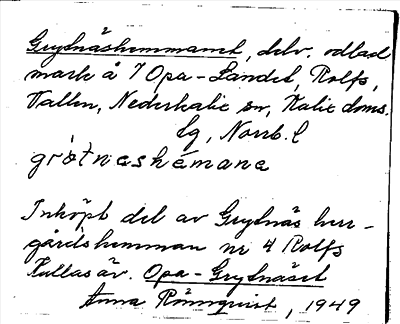 Grytnäshemmanet, delv. odlad
mark å 7 Opa-Landet, Rolfs,
Vallen, Nederkalix sn, Kalix doms.
lg, Norrb. l
grøtnæshémanə
Inköpt del av Grytnäs herr-
gårdshemman nr 4 Rolfs
Kallas äv. Opa-Grytnäset
Anna Rönnquist, 1949